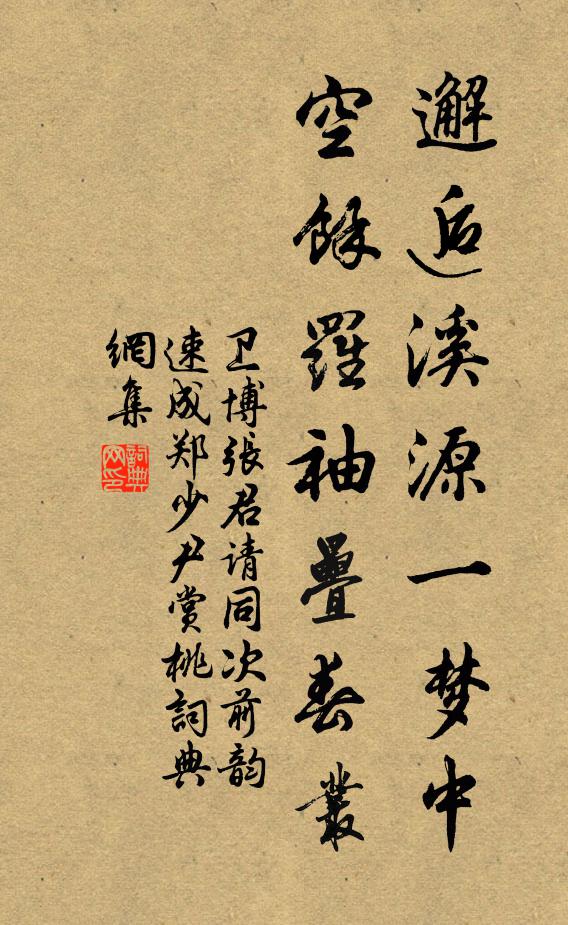 邂逅溪源一梦中
空餘羅袖疊春叢
卫博張君请同次前韵
速成郑少尹赏桃詞典
網集
詞典网印